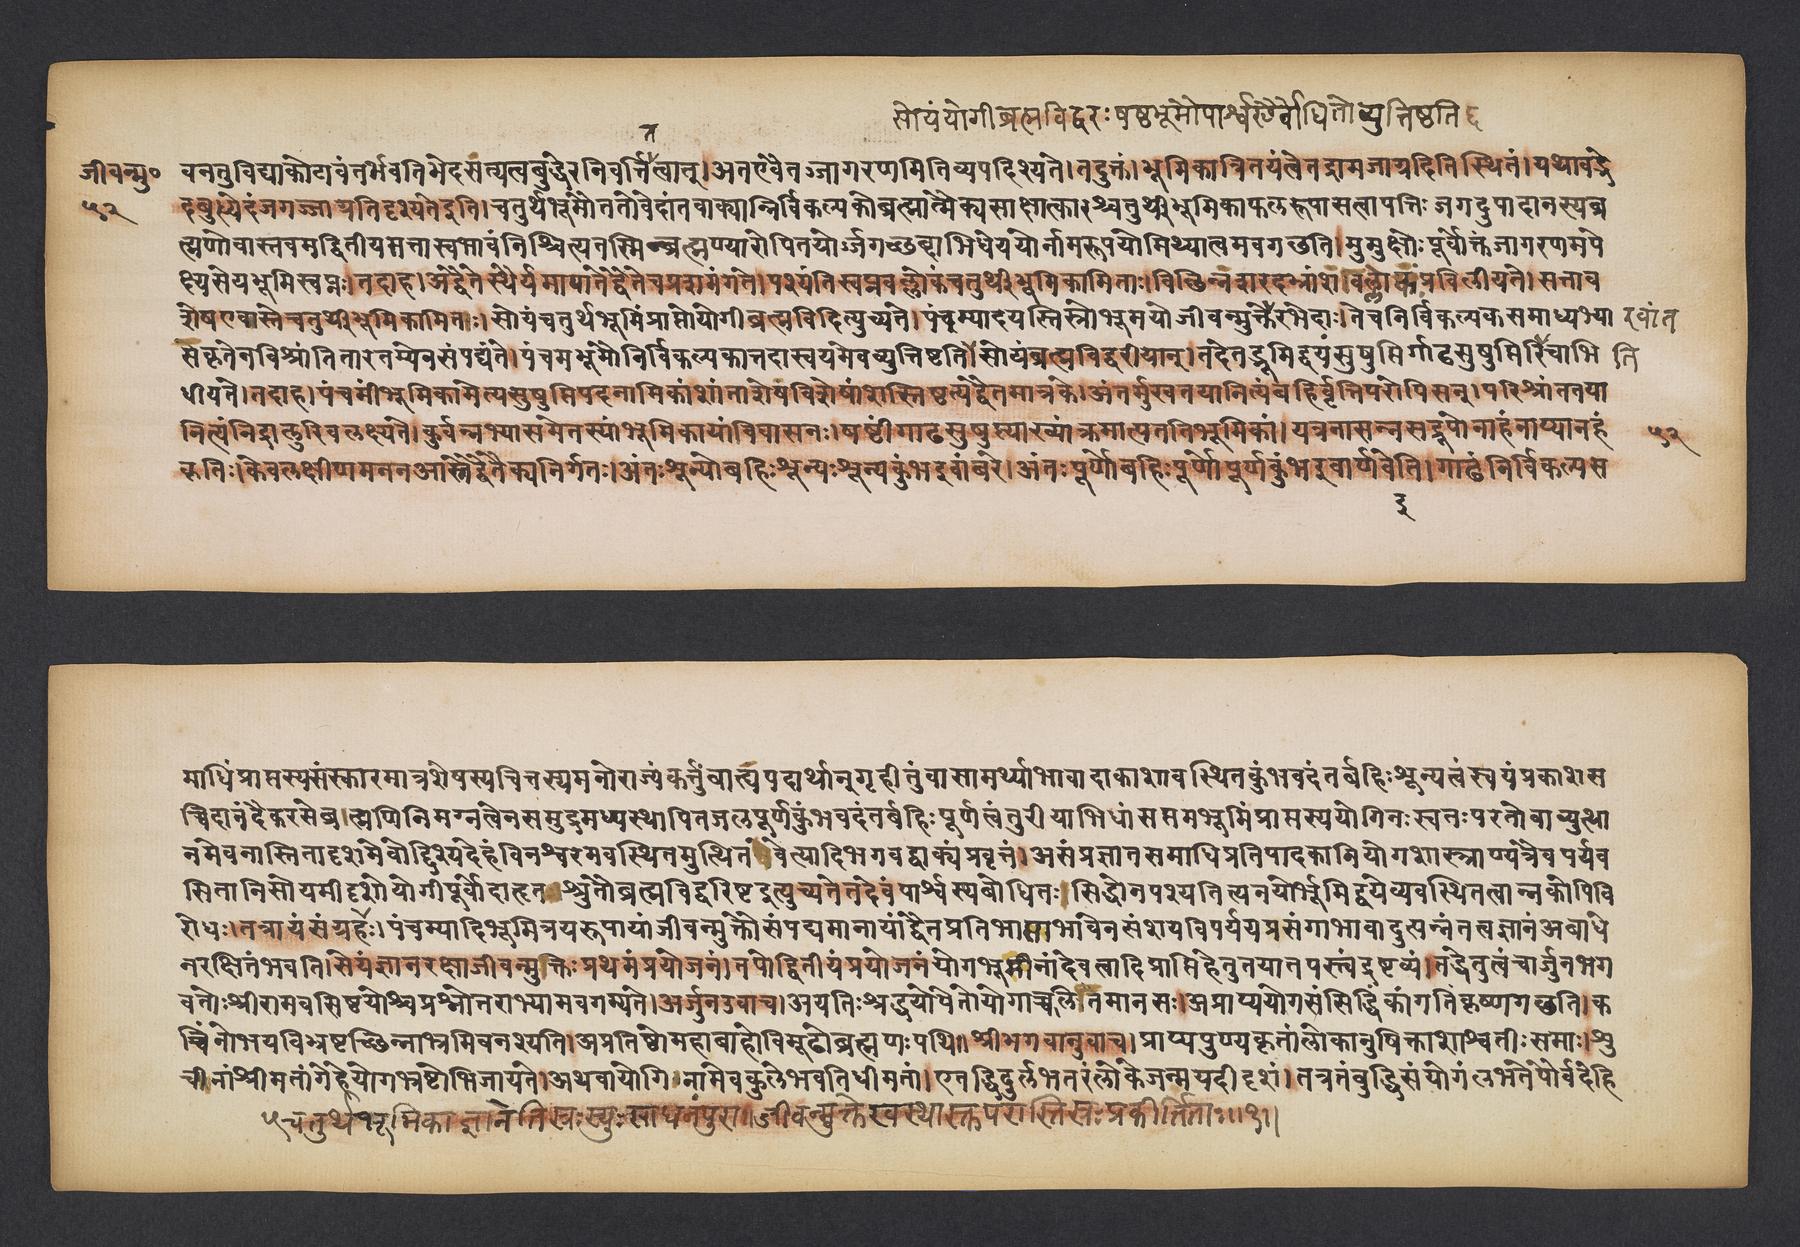 सोयंयोगीब्रह्मविद्वरः षष्ठभूमोपार्श्वस्थैर्बोधितोव्युत्तिष्ठति ६
त
जीवन्मु०
५२
वननुविद्याकोटावंतर्भवतिभेदसत्यत्वबुद्धेरनिवर्त्तित्वात्। अतएवैतज्जागरणमितिव्यपदिश्यते। तदुक्तं। भूमिकात्रितयंत्वेतद्रामजाग्रदितिस्थितं। यथावद्भे
दबुध्येदंजगज्जाग्रतिदृश्यतेइति। चतुर्थभूमौततोवेदांतवाक्यान्निर्विकल्पकोब्रह्मात्मैक्यसाक्षात्कारश्चतुर्थीभूमिकाफलरूपासत्वापत्तिः जगदुपादानस्यब्र
ह्मणोवास्तवमद्वितीयसत्तास्वभावंनिश्चित्यतस्मिन्ब्रह्मण्यारोपितयोर्जगच्छब्दाभिधेययोर्नामरूपयोर्मिथ्यात्वमवगछति। मुमुक्षोः पूर्वोक्तजागरणमपे
क्ष्यसेयंभूमिस्वप्नः। तदाह। अद्वैतेस्थैर्यमायातेद्वैतेचप्रशमंगते। पश्यंतिस्वप्नवल्लोकंचतुर्थीभूमिकामिताः। विछिन्नशरदभ्रांशविलायंप्रविलीयते। सत्ताव
शेषएवास्तेचतुर्थीभूमिकामितः। सोयंचतुर्थभूमिंप्राप्तोयोगीब्रह्मविदित्युच्यते। पंचम्यादयस्तिस्रोभूमयोजीवन्मुक्तेरभेदाः। तेचनिर्विकल्पकसमाध्यभ्या रवांत
सकृतेनविश्रांतितारतम्येनसंपद्यंते। पंचमभूमौनिर्विकल्पकात्तदास्वयमेवव्युत्तिष्टति। सोयंब्रह्मविद्वरीयान्। तदेतद्भूमिद्वयंसुषुप्तिर्गाढसुषुप्तिरिचाभि ति
धीयते। तदाह। पंचमींभूमिकामेत्यसुषुप्तिपदनामिकां। शांताशेषविशेषांशस्तिष्ठत्यद्वैतमात्रके। अंतर्मुखतयानित्यंबहिर्वृत्तिपरोपिसन्। परिश्रांततया
नित्यंनिद्रालुरिवलक्ष्यते। कुर्वन्नभ्यासमेतस्यांभूमिकायांविवासनः। षष्टींगाढसुषुप्त्याख्यांक्रमात्पततिभूमिकां। यत्रनासन्नसद्रूपोनाहंनाप्यानहं ५२
कृतिः। केवलक्षीणमननआस्तेद्वैतैक्यनिर्गतः। अंतःशून्योबहिःशून्यःशून्यकुंभइवांबरे। अंतःपूर्णोबहिःपूर्णोपूर्णकुंभइवार्णवेति। गाढंनिर्विकल्पस
इ
माधिंप्राप्तस्यसंस्कारमात्रशेषस्यचित्तस्यमनोराज्यंकर्त्तुंबाह्यपदार्थानुगृहीतुंवासामर्थ्याभावादाकाशावस्थितकुंभवदंतर्बहिःशून्यत्वंस्वयंप्रकाशस
च्चिदानंदैकरसेब्र।ह्मणिनिमग्नत्वेनसमुद्रमध्यस्थापितजलपूर्णकुंभवदंतर्बहिःपूर्णत्वंतुरीयाभिधांसप्तमभूमिंप्राप्तस्ययोगिनःस्वतःपरतोवाव्युत्था
नमेवनास्तितादृशमेवोद्दिश्यदेहंविनश्वरमवस्थितमुत्थितं वेत्यादिभगवद्वाक्यंप्रवृत्तं। असंप्रज्ञातसमाधिप्रतिपादकानियोगशास्त्राण्यत्रैवपर्यव
सितानिसोयमीदृशोयोगीपूर्वोदाहृत श्रुतौब्रह्मविद्वरिष्टइत्युच्यतेतदेवंपार्श्वस्यबोधितः। सिद्धोनपश्यतित्यनयोर्भूमिद्वयेव्यवस्थितत्वान्नकोपिवि
रोधः। तत्रायंसंग्रहः। पंचम्यादिभूमित्रयरूपायांजीवन्मुक्तौसंपद्यमानायांद्वैतप्रतिभासाभावेनसंशयविपर्ययप्रसंगाभावादुत्पन्नंतत्वज्ञानंअबाधे
नरक्षितंभवति। सेयंज्ञानरक्षाजीवन्मुक्तिःप्रथमंप्रयोजनं। तपोद्वितीयंप्रयोजनंयोगभूमीनांदेवत्वादिप्राप्तिहेतुतयातपस्त्वंदृष्टव्यं। तद्धेतुत्वंचार्जुनभग
वतोःश्रीरामवसिष्टयोश्चप्रश्नोत्तराभ्यामवगम्यते। अर्जुनउवाच। अयतिःश्रद्धयोपेतोयोगाच्चलितमानसः। अप्राप्ययोगसंसिद्धिंकांगतिंकृष्णगछति। क
च्चिंनोभयविभ्रष्टच्छिन्नाभ्रमिवनश्यति। अप्रतिष्ठोमहाबाहोविमूढोब्रह्मणःपथि। श्रीभगवानुवाच। प्राप्यपुण्यकृतांलोकानुषित्वाशाश्वतीःसमाः। शु
चीनांश्रीमतांगेहेयोगभ्रष्टोभिजायते। अथवायोगि।नामेवकुलेभवतिधीमतां। एतद्धिदुर्लभतरंलोकेजन्मयदीदृशं। तत्रतंबुद्धिसंयोगंलभतेपौर्वदेहि
५चतुर्थभूमिकाज्ञानंतिस्रःस्युःसाधनंपुरा। जीवन्मुक्तेरवस्थास्तुपरास्तिस्रःप्रकीर्तिताः।।१।।